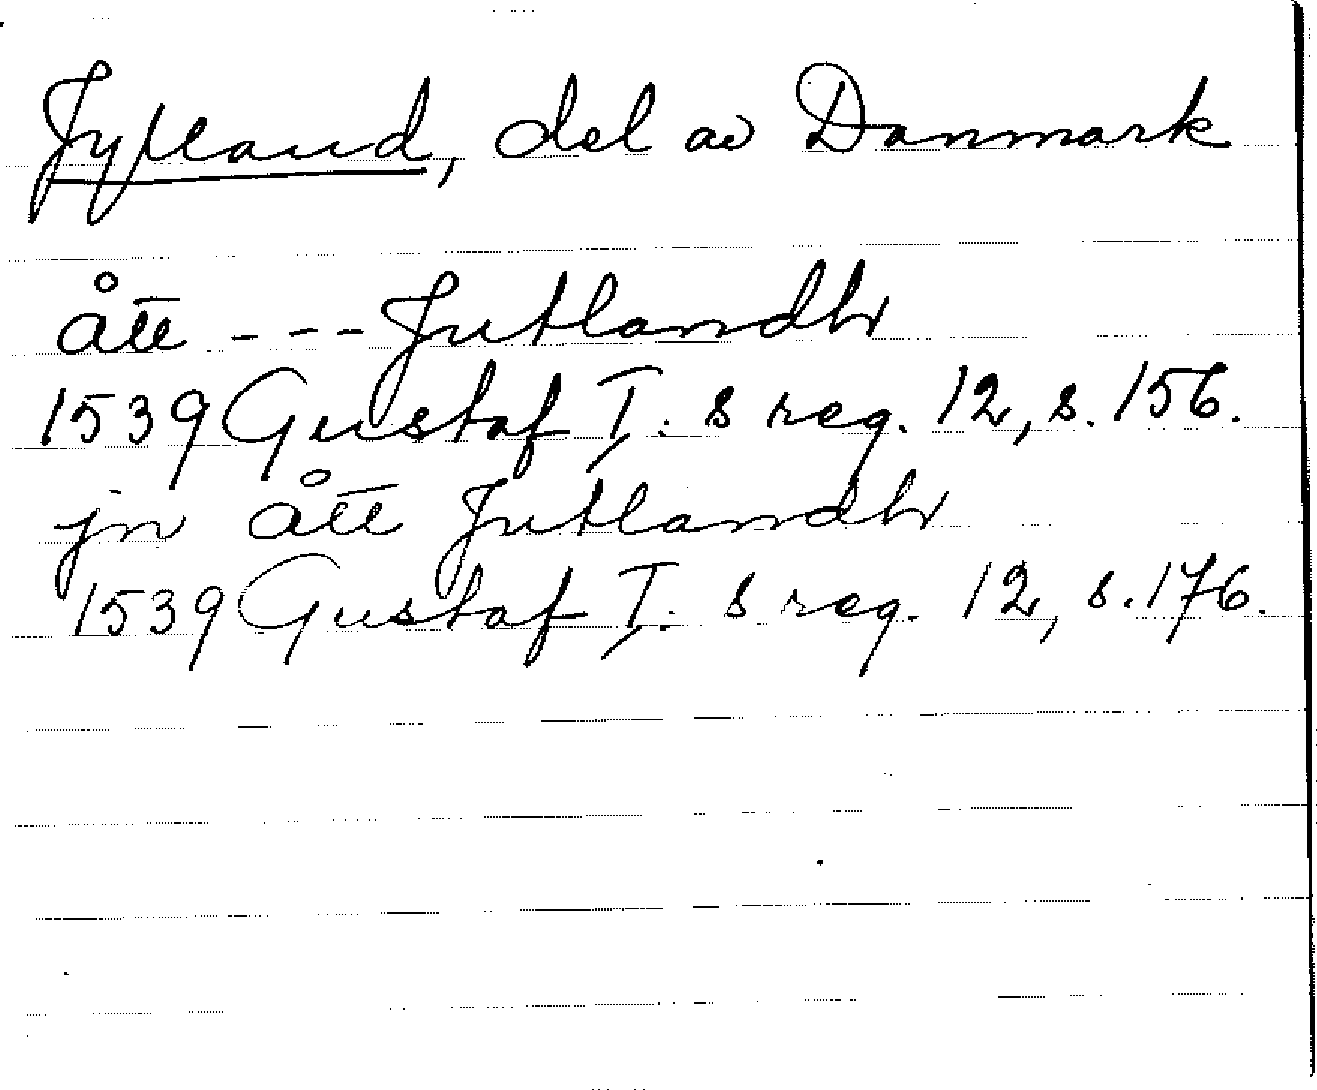 Jylland, del av Danmark
ått --- Jutlandh
1539 Gustaf I:s reg. 12, s. 156.
jnått Jutlandh
1539 Gustaf I:s reg. 12, s. 176.